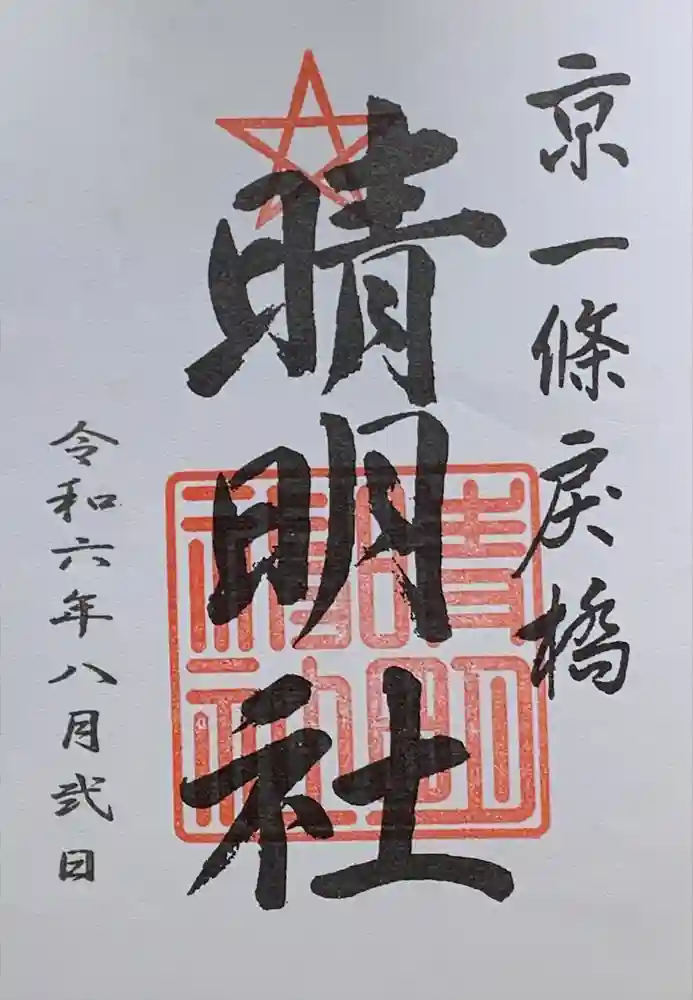 京一條戻橋
晴明社
令和六年八月弐日